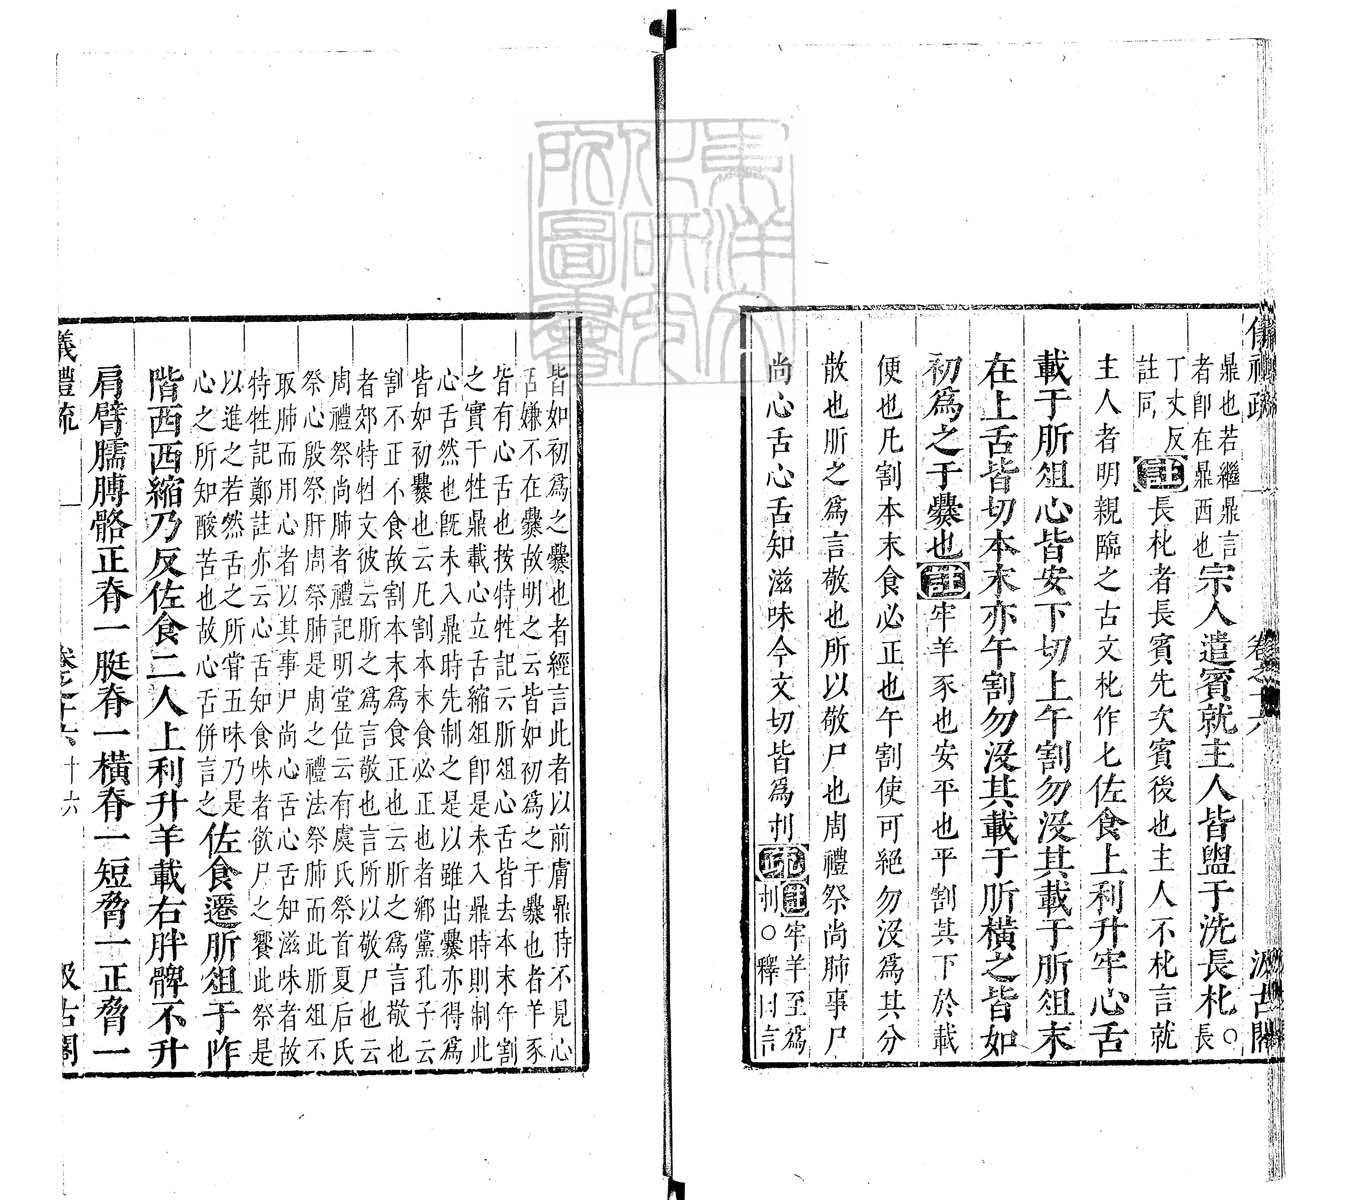 儀禮疏 卷之十六 汲古閣
鼎也若繼鼎言
者卽在鼎西也宗人遣賓就主人皆盥于洗長朼○長
丁丈反
註同 註長朼者長賓先次賓後也主人不朼言就
主人者明親臨之古文朼作匕佐食上利升牢心舌
載于肵俎心皆安下切上午割勿沒其載于肵俎末
在上舌皆切本末亦午割勿沒其載于肵橫之皆如
初爲之于爨也註牢羊豕也安平也平割其下於載
便也凡割本末食必正也午割使可絕勿沒爲其分
散也肵之爲言敬也所以敬尸也周禮祭尚肺事尸
尚心舌心舌知滋味今文切皆爲刌疏註牢羊至爲
刌○釋曰言
皆如初爲之爨也者經言此者以前膚鼎待不見心
舌嫌不在爨故明之云皆如初爲之于爨也者羊豕
皆有心舌也按特牲記云肵俎心舌皆去本末午割
之實于牲鼎載心立舌縮俎卽是未入鼎時則制此
心舌然也旣未入鼎時先制之是以雖出爨亦得爲
皆如初爨也云凡割本末食必正也者鄉黨孔子云
割不正不食故割本末爲食正也云肵之爲言敬也
者郊特牲文彼云肵之爲言敬也言所以敬尸也云
周禮祭尚肺者禮記明堂位云有虞氏祭首夏后氏
祭心殷祭肝周祭肺是周之禮法祭肺而此肵俎不
取肺而用心者以其事尸尚心舌心舌知滋味者故
特牲記鄭註亦云心舌知食味者欲尸之饗此祭是
以進之若然舌之所嘗五味乃是
心之所知酸苦也故心舌併言之佐食遷肵俎于阼
階西西縮乃反佐食二人上利升羊載右胖髀不升
肩臂臑膊骼正脊一脡脊一橫脊一短脅一正脅一
儀禮疏 卷之十六 十六 汲古閣
東洋文化研究所圖書